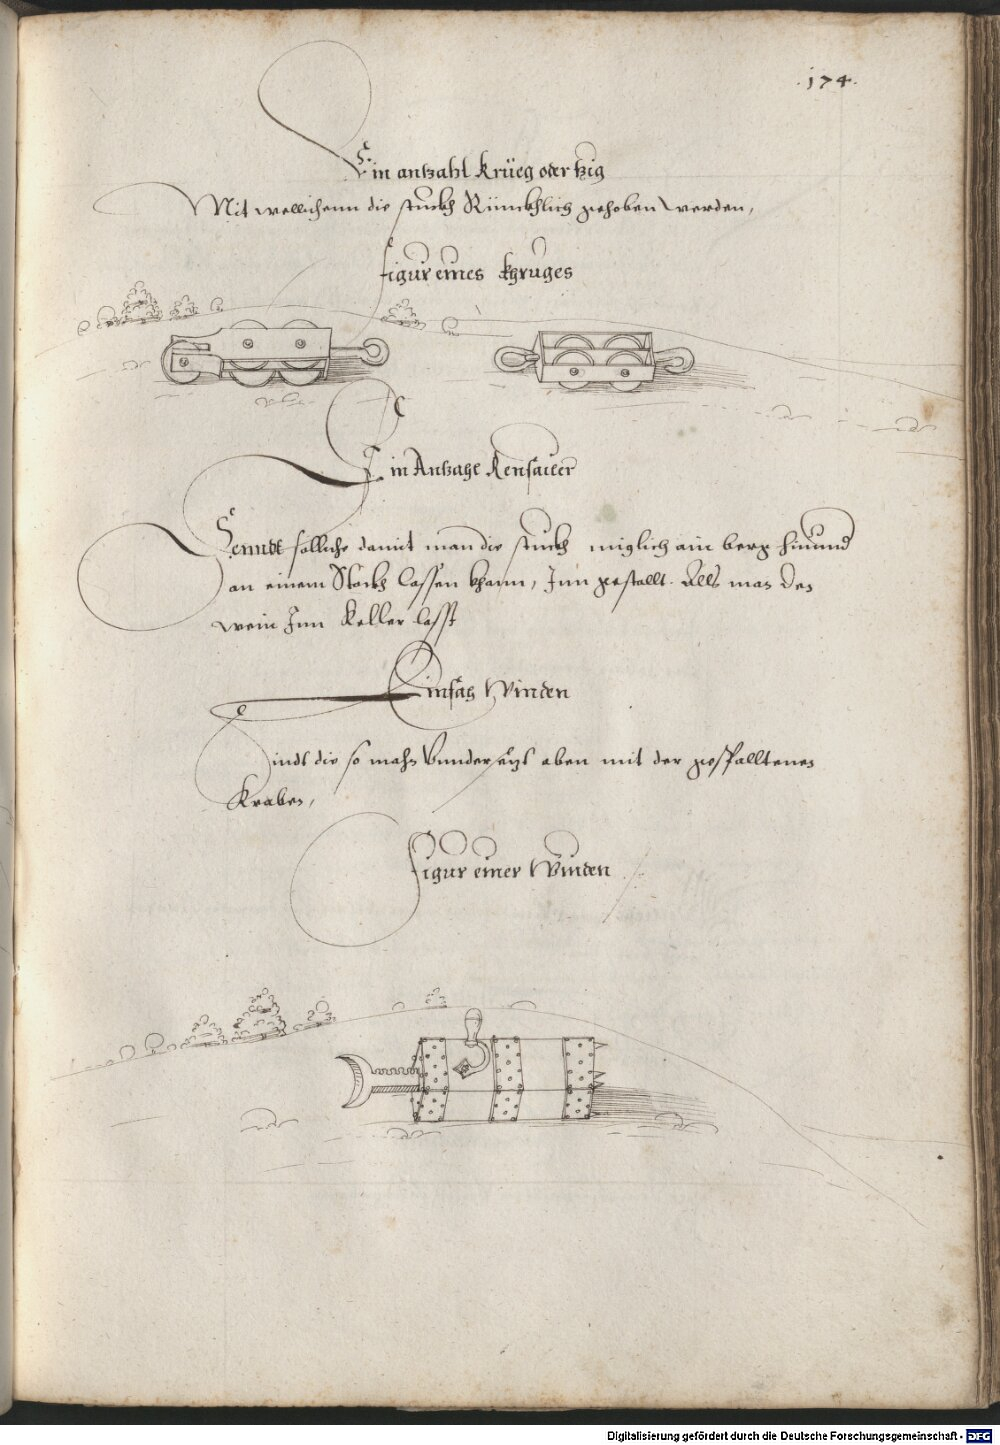 .174.
Ein antzahl Krüeg oder tzig
Mit wellichenn die stuckh Rünckhlich gehoben werden,
figur eines khruges
Ein Antzahl Rensailer
Senndt solliche damit man die stuckh miglich ain berg hinund
an einem Stockh lassen khann, Inn gestallt. Alls man den
wein Inn Keller lasst
Einsatz Winden
Sindt die so mahn Vndersetzt aben mit der gespalltenen
Kraben,
figur einer Winden
Digitalisierung gefördert durch die Deutsche Forschungsgemeinschaft - DFG